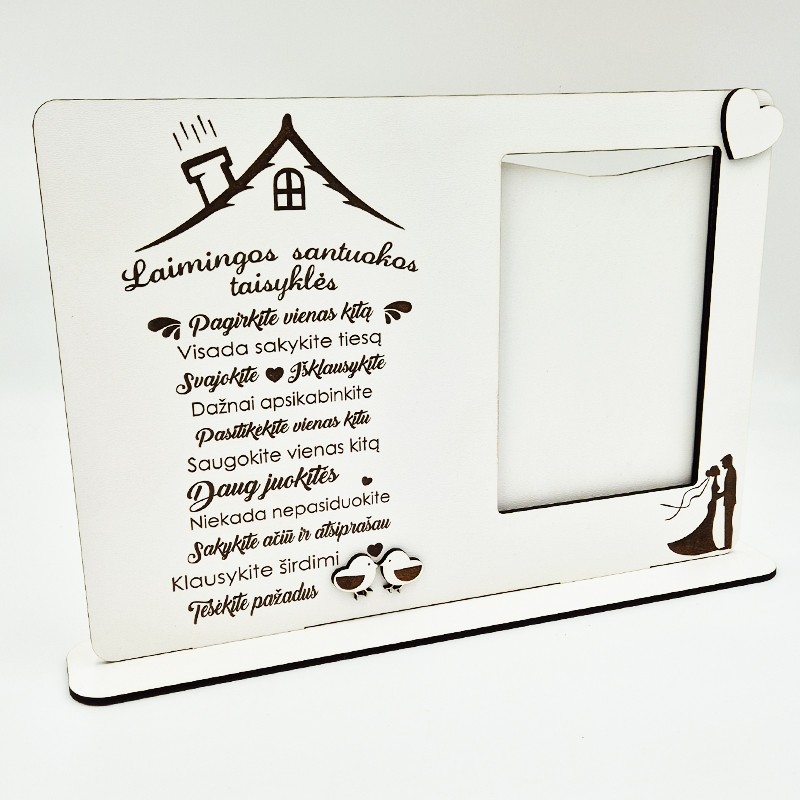 Laimingos santuokos
taisyklės
Pagirkite vienas kitą
Visada sakykite tiesą
Svajokite Išklausykite
Dažnai apsikabinkite
Pasitikėkite vienas kitu
Saugokite vienas kitą
Daug juokitės
Niekada nepasiduokite
Sakykite ačiū ir atsiprašau
Klausykite širdimi
Tesėkite pažadus